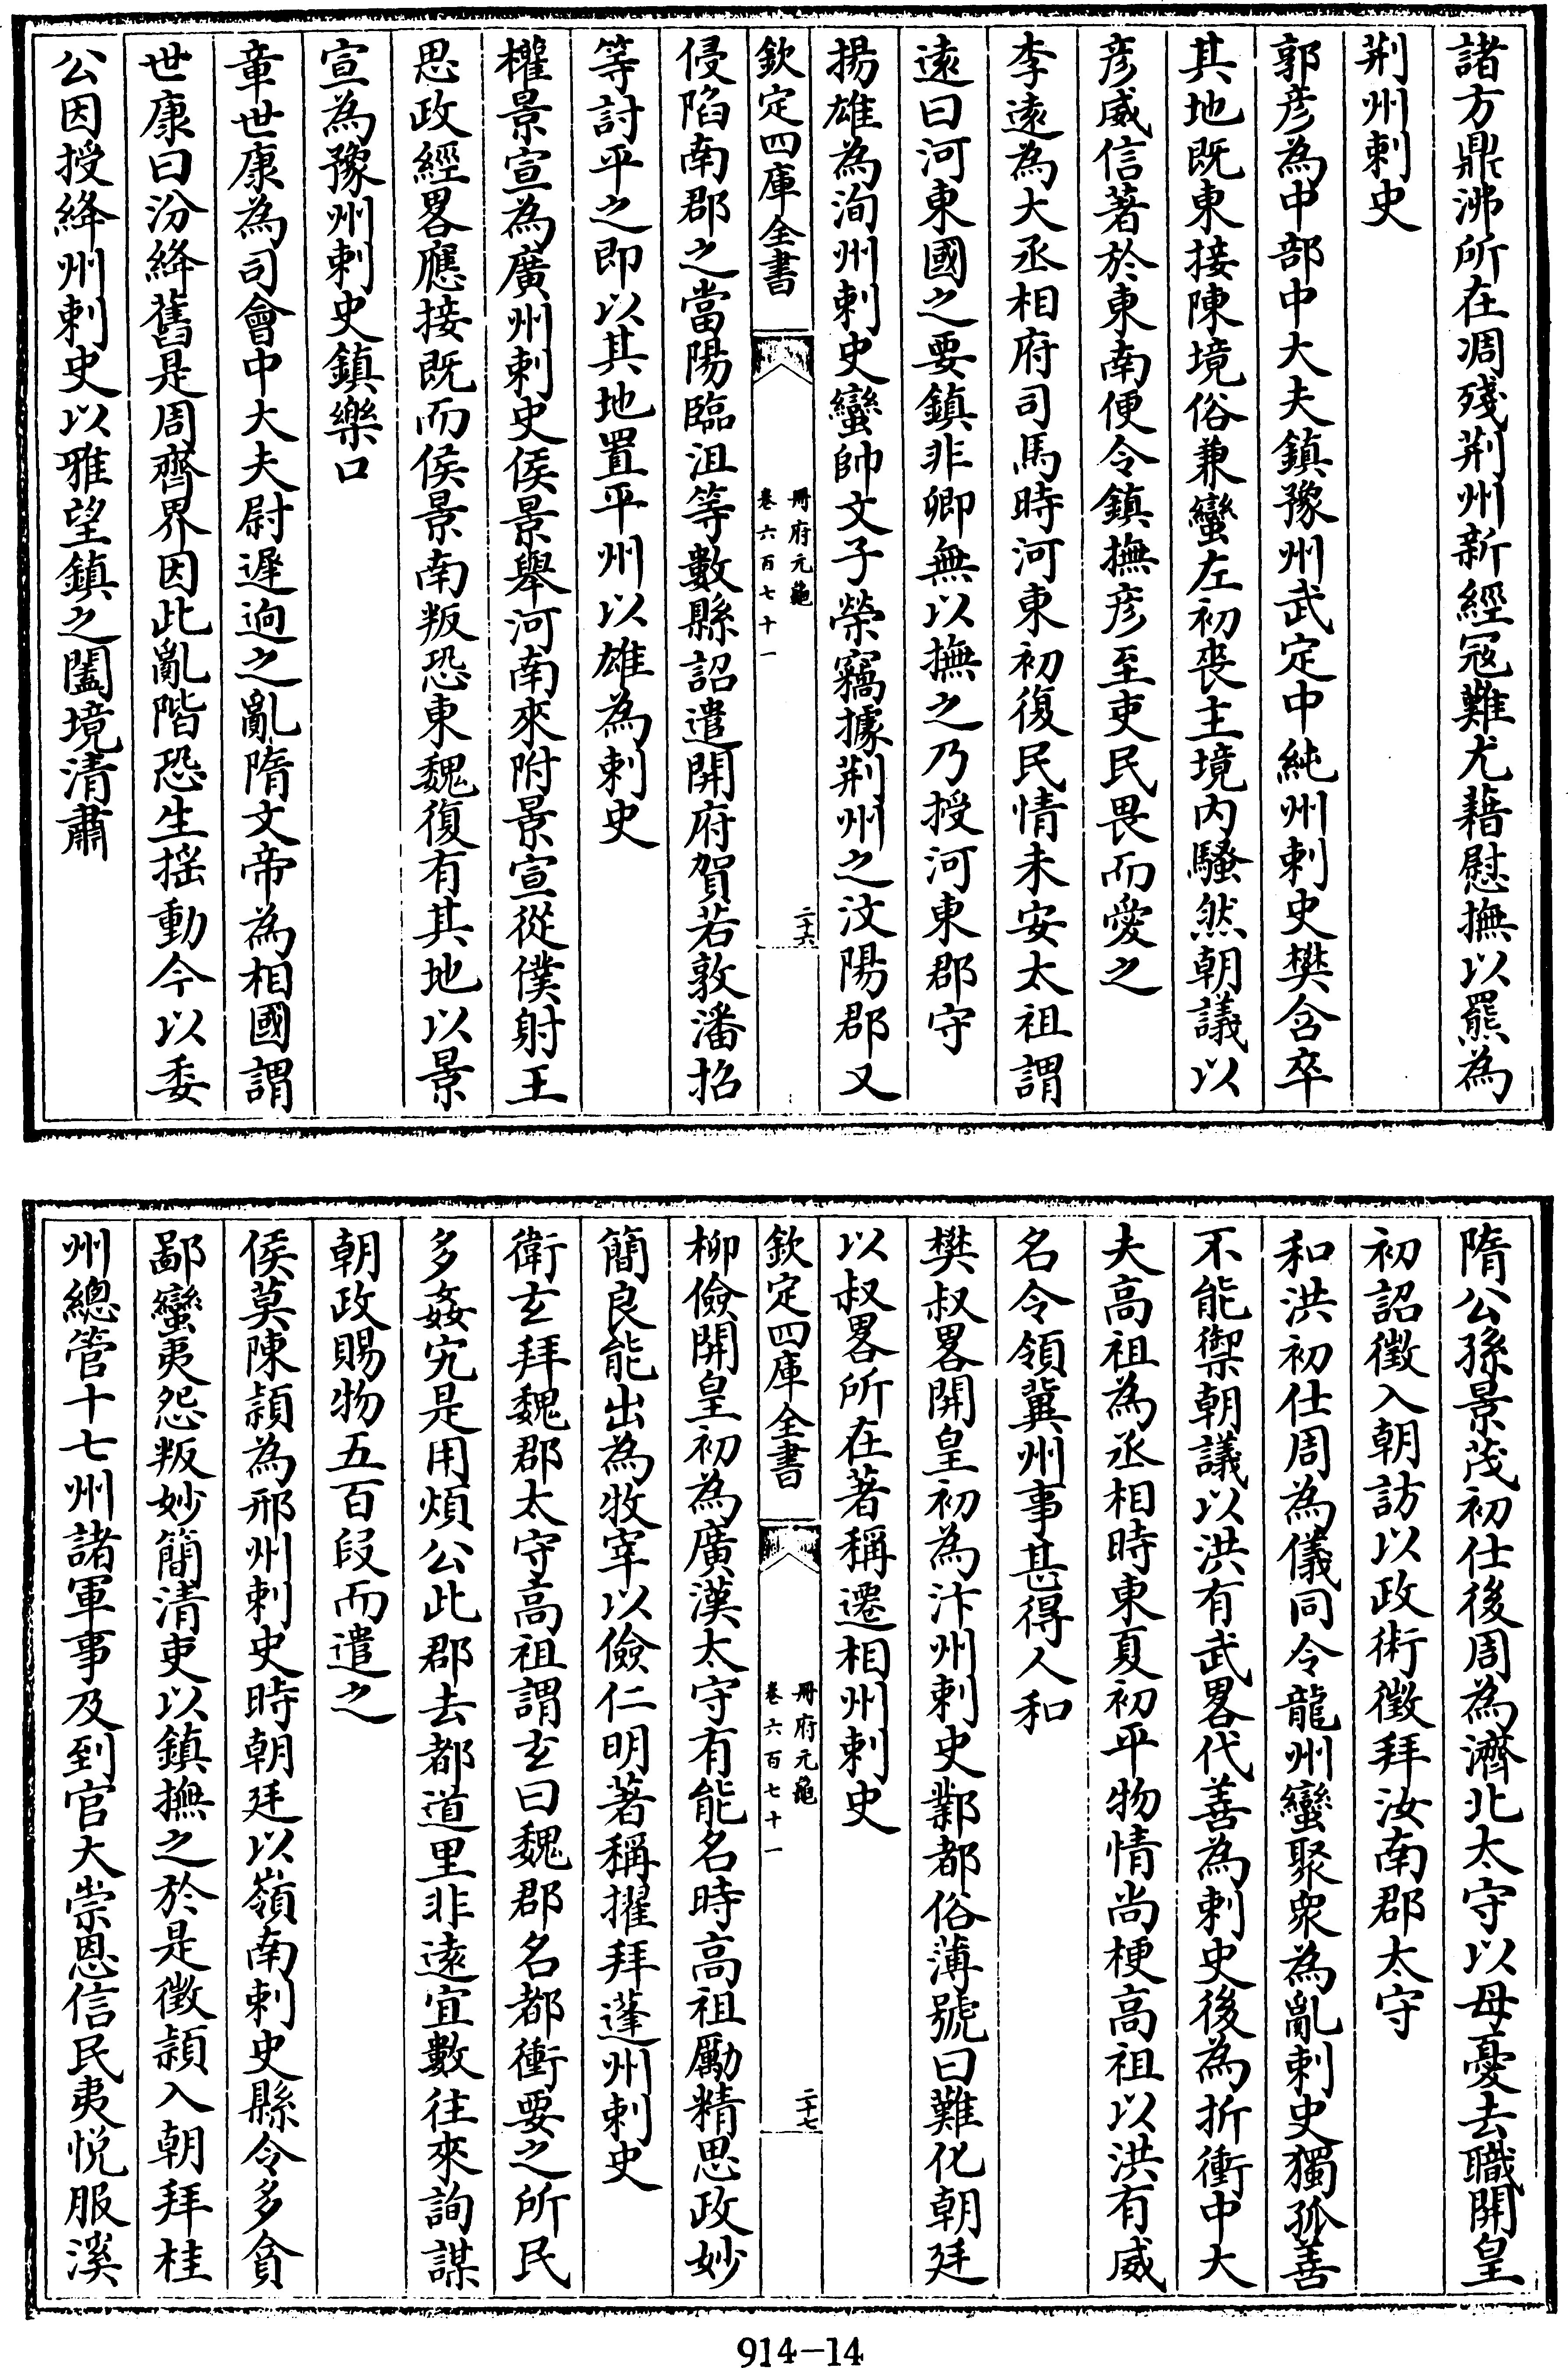 諸方鼎沸所在凋殘荆州新經冦難尤藉慰撫以羆為
荆州刺史
郭彦為中部中大夫鎮豫州武定中純州刺史樊含卒
其地既東接陳境俗兼蠻左初喪主境内騷然朝議以
彦威信著於東南便令鎮撫彦至吏民畏而愛之
李遠為大丞相府司馬時河東初復民情未安太祖謂
遠曰河東國之要鎮非卿無以撫之乃授河東郡守
揚雄為洵州刺史蠻帥文子榮竊據荆州之汶陽郡又
欽定四庫全書
冊府元龜
卷六百七十一
二十六
侵陷南郡之當陽臨沮等數縣詔遣開府賀若敦潘招
等討平之即以其地置平州以雄為刺史
權景宣為廣州刺史侯景舉河南來附景宣從僕射王
思政經畧應接既而侯景南叛恐東魏復有其地以景
宣為豫州刺史鎮樂口
韋世康為司會中大夫尉遲逈之亂隋文帝為相國謂
世康曰汾絳舊是周齊界因此亂階恐生揺動今以委
公因授絳州刺史以雅望鎮之闔境清肅
隋公孫景茂初仕後周為濟北太守以母憂去職開皇
初詔徵入朝訪以政術徵拜汝南郡太守
和洪初仕周為儀同令龍州蠻聚衆為亂刺史獨孤善
不能禦朝議以洪有武畧代善為刺史後為折衝中大
夫高祖為丞相時東夏初平物情尚梗高祖以洪有威
名令領冀州事甚得人和
樊叔畧開皇初為汴州刺史鄴都俗薄號曰難化朝廷
以叔畧所在著稱遷相州刺史
欽定四庫全書
冊府元龜
卷六百七十一
二十七
柳儉開皇初為廣漢太守有能名時高祖勵精思政妙
簡良能出為牧宰以儉仁明著稱擢拜蓬州刺史
衛玄拜魏郡太守高祖謂玄曰魏郡名都衝要之所民
多姦宄是用煩公此郡去都道里非遠宜數往來詢謀
朝政賜物五百段而遣之
侯莫陳頴為邢州刺史時朝廷以嶺南刺史縣令多貪
鄙蠻夷怨叛妙簡清吏以鎮撫之於是徵頴入朝拜桂
州總管十七州諸軍事及到官大崇恩信民夷悦服溪
914-14